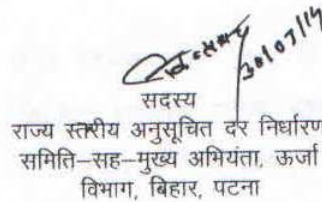 30/07/14
सदस्य
राज्य स्तरीय अनुसूचित दर निर्धारण
समिति-सह-मुख्य अभियंता, ऊर्जा
विभाग, बिहार, पटना